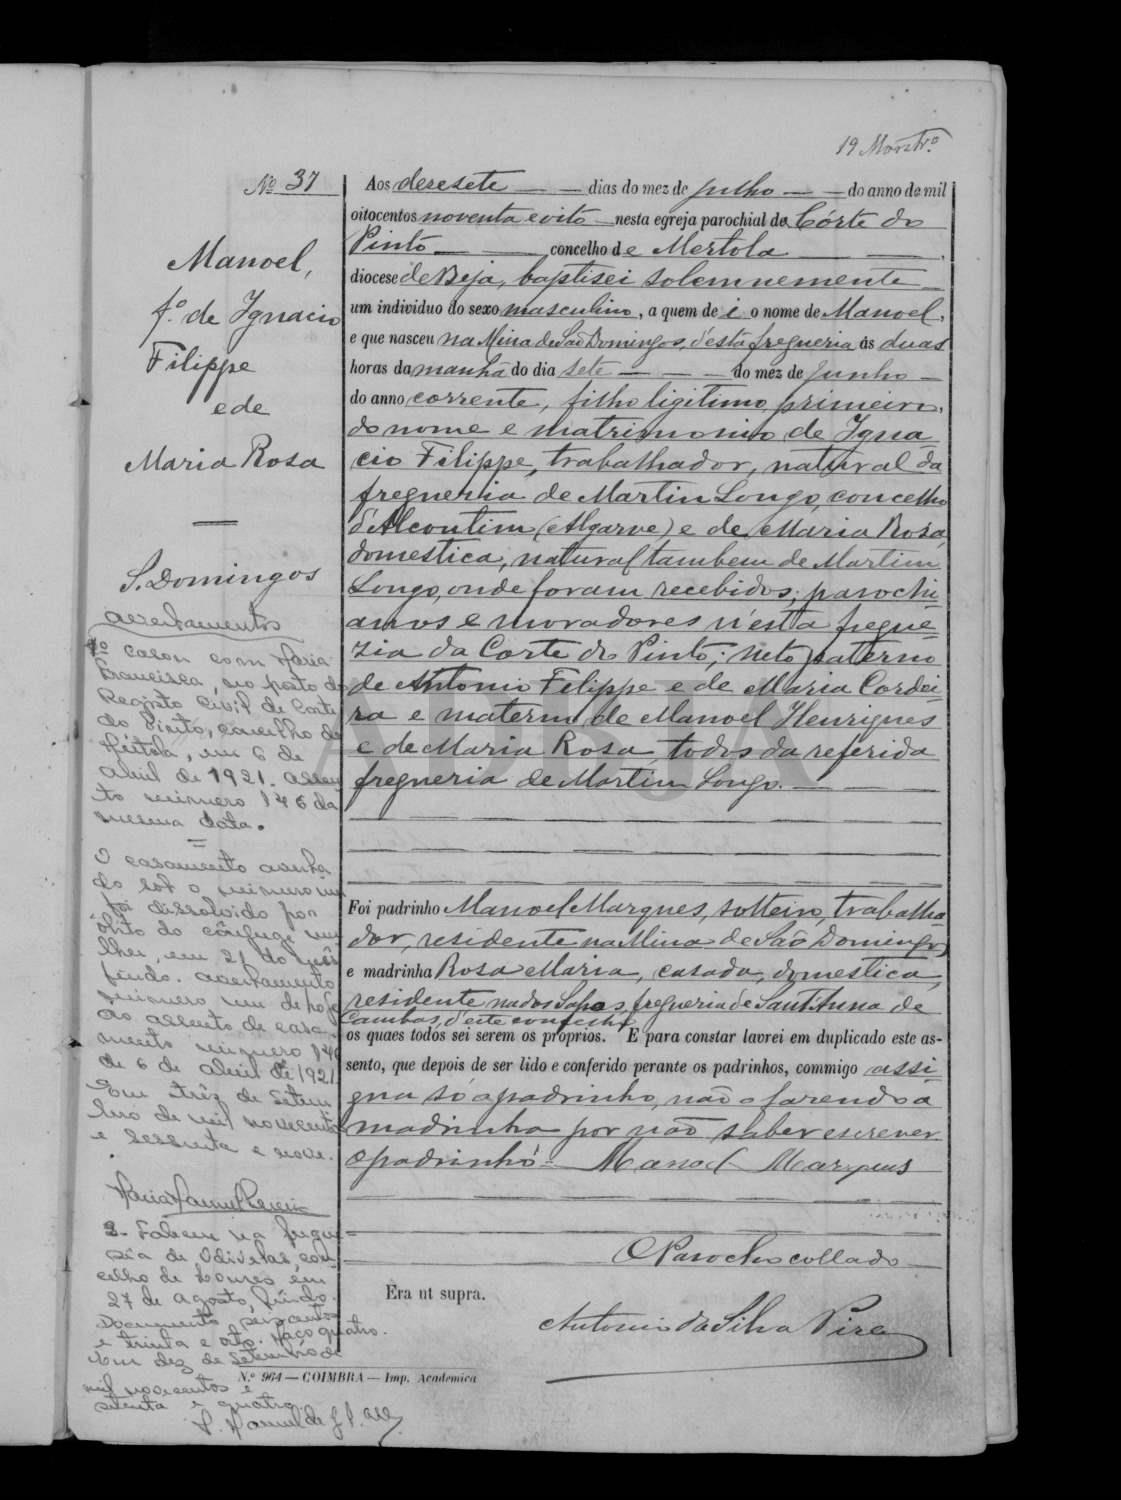 Nº 37
Manoel,
fº. de Ignacio
Filippe
e de
Maria Rosa
S. Domingos
Aos desesete — — dias do mez de Julho — — do anno de mil
oitocentos noventa e oito — nesta egreja parochial de Córte do
Pinto — — concelho de Mertola — — ,
diocese de Beja, baptisei solemnemente
um individuo do sexo masculino, a quem dei o nome de Manoel,
e que nasceu na Mina de São Domingos, d'esta freguezia ás duas
horas da manhã do dia sete — — — do mez de Junho —
do anno corrente, filho ligitimo, primeiro,
do nome e matrimonio de Igna
cio Filippe, trabalhador, natural da
freguezia de Martin Longo, concelho
d'Alcoutim (Algarve) e de Maria Rosa,
domestica, natural tambem de Martim
Longo, onde foram recebidos, parochi=
anos e moradores n'esta fregue=
zia da Corte do Pinto; neto paterno
de Antonio Filippe e de Maria Cordei=
ra e materno de Manoel Henriques
e de Maria Rosa, todos da referida
freguezia de Martim Longo. — — —
Foi padrinho Manoel Marques, solteiro, trabalha
dor, residente na Mina de São Domingos,
e madrinha Rosa Maria, casada, domestica,
residente na dos Sapos, freguezia de Sant'Anna de
Cambas, d'este concelho,
os quaes todos sei serem os proprios. E para constar lavrei em duplicado este as-
sento, que depois de ser lido e conferido perante os padrinhos, commigo assi=
gna só o padrinho, não o fazendo a
madrinha por não saber escrever.
O padrinho = Manoel Marques
O Parocho collado
Era ut supra.
Antonio da Silva Pires
N.º 964 — COIMBRA — Imp. Academica
averbamentos
1º Casou com Maria
Francisca, no posto do
Registo Civil de Corte
do Pinto, concelho de
Mértola, em 6 de
Abril de 1921. Assen
to número 146 da
mesma data.
O casamento averba
do sob o número um
foi dissolvido por
óbito do cônjuge mu
lher, em 21 do mês
findo. averbamento
número um de hoje
ao assento de casa
mento número 146
de 6 de Abril de 1921.
Em três de Setem
bro de mil novecentos
e sessenta e nove.
2- Faleceu na fregue=
sia de Odivelas, con=
celho de Loures em
27 de Agosto, findo.
Documento seiscentos
e trinta e oito. Maço quatro.
Em dez de Setembro de
mil novecentos e
setenta e quatro.
ADBJA